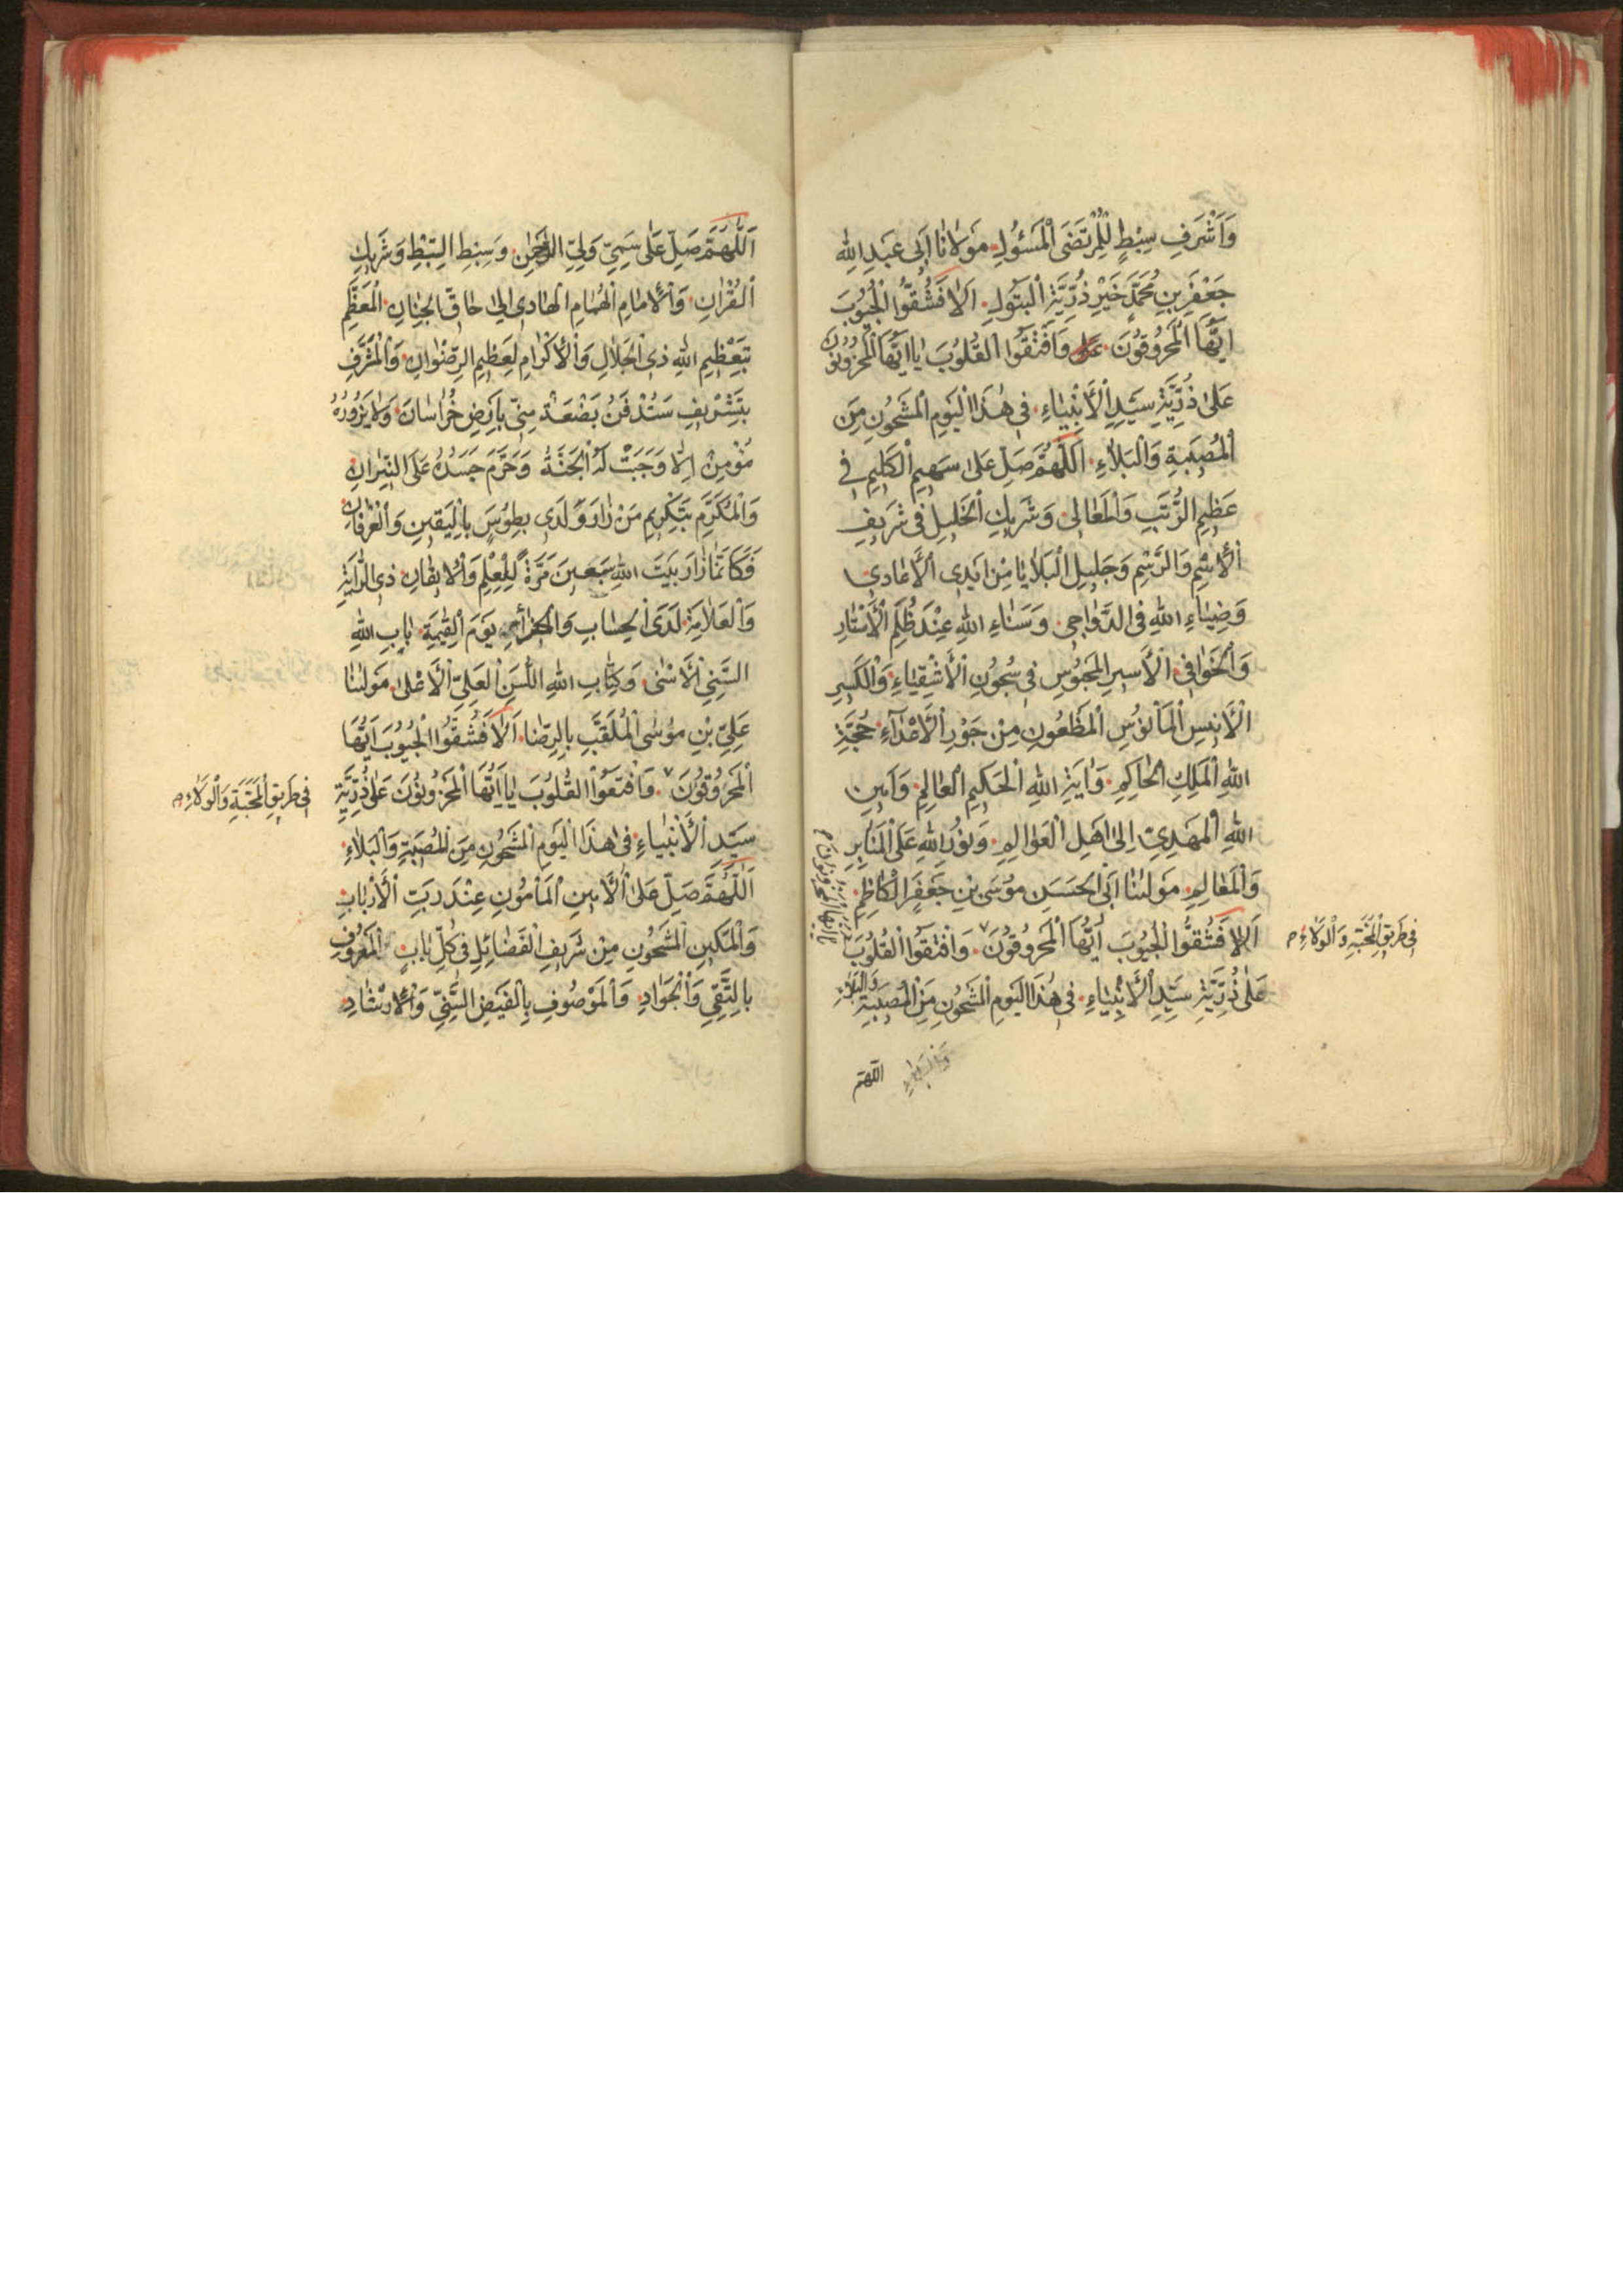 وَاَشْرَفِ سِبْطٍ لِلْمُرْتَضَى الْمَسْئُولِ مَوْلَانَا اَبِى عَبْدِ اللهِ
جَعْفَرِ بْنِ مُحَمَّدٍ خَيْرِ ذُرِّيَّةِ الْبَتُولِ اَلَا فَشُقُّوا الْجُيُوبَ
اَيُّهَا الْمَحْرُوقُونَ وَافْتَقُوا الْقُلُوبَ يَا اَيُّهَا الْمَحْزُونُونَ
عَلَى ذُرِّيَّةِ سَيِّدِ الْاَنْبِيَاءِ فِى هٰذَا الْيَوْمِ الْمَشْحُونِ مِنَ
الْمُصِيبَةِ وَالْبَلَاءِ اَللّٰهُمَّ صَلِّ عَلَى سَهِيمِ الْكَلِيمِ فِى
عَظِيمِ الرُّتَبِ وَالْمَعَالِى وَشَرِيكِ الْخَلِيلِ فِى شَرِيفِ
الْاِسْمِ وَالرَّسْمِ وَجَلِيلِ الْبَلَايَا مِنْ اَيْدِى الْاَعَادِى
وَضِيَاءِ اللهِ فِى الدَّوَاجِى وَسَنَاءِ اللهِ عِنْدَ ظُلَمِ الْاَسْتَارِ
وَالْخَوَافِى الْاَسِيرِ الْمَحْبُوسِ فِى سُجُونِ الْاَشْقِيَاءِ وَالْكَبِيرِ
الْاَنِيسِ الْمَأْنُوسِ الْمَطْعُونِ مِنْ جَوْرِ الْاَعْدَاءِ حُجَّةِ
اللهِ الْمَلِكِ الْحَاكِمِ وَايَةِ اللهِ الْحَكِيمِ الْعَالِمِ وَاَمِينِ
اللهِ الْمَهْدِيِّ اِلَى اَهْلِ الْعَوَالِمِ وَنُورِ اللهِ عَلَى الْمَنَابِرِ
وَالْمَعَالِمِ مَوْلٰنَا اَبِى الْحَسَنِ مُوسَى بْنِ جَعْفَرٍ الْكَاظِمِ
اَلَا فَشُقُّوا الْجُيُوبَ اَيُّهَا الْمَحْرُوقُونَ وَافْتَقُوا الْقُلُوبَ
يَا اَيُّهَا الْمَحْزُونُونَ م
فِى طَرِيقِ الْمَحَبَّةِ وَالْوَلَاءِ م
عَلَى ذُرِّيَّةِ سَيِّدِ الْاَنْبِيَاءِ فِى هٰذَا الْيَوْمِ الْمَشْحُونِ مِنَ الْمُصِيبَةِ وَالْبَلَاءِ
اللّهمّ
اَللّٰهُمَّ صَلِّ عَلَى سَمِىِّ وَلِىِّ الرَّحْمٰنِ وَسِبْطِ السِّبْطِ وَشَرِيكِ
الْقُرْانِ وَالْاِمَامِ الْهُمَامِ الْهَادِى اِلَى حَاقِّ الْجِنَانِ الْمُعَظَّمِ
بِتَعْظِيمِ اللهِ ذِى الْجَلَالِ وَالْاِكْرَامِ لِعَظِيمِ الرِّضْوَانِ وَالْمُشَرَّفِ
بِتَشْرِيفِ سَتُدْفَنُ بَضْعَةٌ مِنِّى بِاَرْضِ خُرَاسَانَ وَلَا يَزُورُهُ
مُؤْمِنٌ اِلَّا وَجَبَتْ لَهُ الْجَنَّةُ وَحَرَّمَ جَسَدُهُ عَلَى النِّيرَانِ
وَالْمُكَرَّمِ بِتَكْرِيمِ مَنْ زَارَ وَلَدِى بِطُوسَ بِالْيَقِينِ وَالْعِرْفَانِ
فَكَاَنَّمَا زَارَ بَيْتَ اللهِ سَبْعِينَ مَرَّةً لِلْعِلْمِ وَالْاِيقَانِ ذِى الرَّايَةِ
وَالْعَلَامَةِ لَدَى الْحِسَابِ يَوْمَ الْقِيٰمَةِ بَابِ اللهِ
السَّنِىِّ الْاَسْنَى وَكِتَابِ اللهِ اللَّسَنِ الْعَلِىِّ الْاَعْلَى مَوْلٰنَا
عَلِىِّ بْنِ مُوسَى الْمُلَقَّبِ بِالرِّضَا اَلَا فَشُقُّوا الْجُيُوبَ اَيُّهَا
الْمَحْرُوقُونَ وَافْتَقُوا الْقُلُوبَ يَا اَيُّهَا الْمَحْزُونُونَ عَلَى ذُرِّيَّةِ
فِى طَرِيقِ الْمَحَبَّةِ وَالْوَلَاءِ م
سَيِّدِ الْاَنْبِيَاءِ فِى هٰذَا الْيَوْمِ الْمَشْحُونِ مِنَ الْمُصِيبَةِ وَالْبَلَاءِ
اَللّٰهُمَّ صَلِّ عَلَى الْاَمِينِ الْمَأْمُونِ عِنْدَ رَبِّ الْاَرْبَابِ
وَالْمَكِينِ الْمَشْحُونِ مِنْ شَرِيفِ الْفَضَائِلِ فِى كُلِّ بَابٍ الْمَعْرُوفِ
بِالتَّقِىِّ وَالْجَوَادِ وَالْمَوْصُوفِ بِالْفَيْضِ السَّنِىِّ وَالْاِرْشَادِ